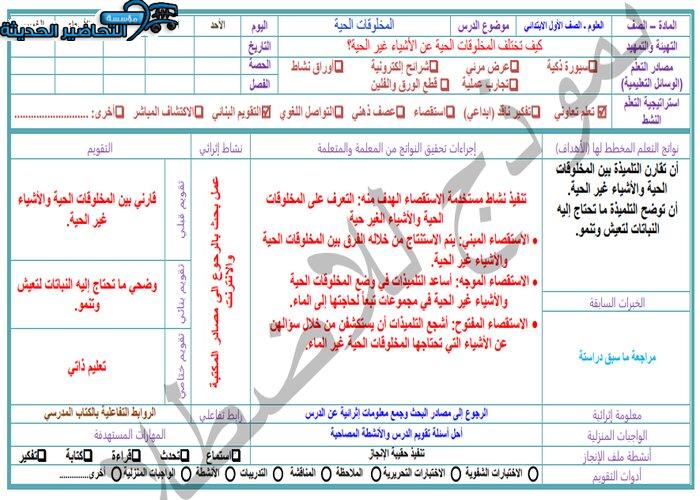 مؤسسة
التحاضير الحديثة
المادة – الصف
العلوم - الصف الأول الابتدائي
موضوع الدرس
المخلوقات الحية
اليوم
الأحد
التهيئة والتمهيد
كيف تختلف المخلوقات الحية عن الأشياء غير الحية؟
التاريخ
مصادر التعلم
(الوسائل التعليمية)
سبورة ذكية
عرض مرئي
شرائح إلكترونية
أوراق نشاط
تجارب عملية
قطع الورق والفلين
الحصة
الفصل
استراتيجية التعلم
النشط
تعلم تعاوني
تفكير ناقد (ابداعي)
استقصاء
عصف ذهني
التواصل اللغوي
التقويم البنائي
الاكتشاف المباشر
أخرى: ....................
نواتج التعلم المخطط لها (الأهداف)
إجراءات تحقيق النواتج من المعلمة والمتعلمة
نشاط إثرائي
التقويم
أن تقارن التلميذة بين المخلوقات
الحية والأشياء غير الحية.
أن توضح التلميذة ما تحتاج إليه
النباتات لتعيش وتنمو.
تنفيذ نشاط مستخدمة الاستقصاء الهدف منه: التعرف على المخلوقات
الحية والأشياء الغير حية.
الاستقصاء المبني: يتم الاستنتاج من خلاله الفرق بين المخلوقات الحية
والأشياء غير الحية.
الاستقصاء الموجه: أساعد التلميذات في وضع المخلوقات الحية
والأشياء غير الحية في مجموعات تبعاً لحاجتها إلى الماء.
الاستقصاء المفتوح: أشجع التلميذات أن يستكشفن من خلال سؤالهن
عن الأشياء التي تحتاجها المخلوقات الحية غير الماء.
عمل بحث بالرجوع الى مصادر المكتبة
والانترنت
تقويم قبلي
قارني بين المخلوقات الحية والأشياء
غير الحية.
تقويم بنائي
وضحي ما تحتاج إليه النباتات لتعيش
وتنمو.
تقويم ختامي
تعليم ذاتي
الخبرات السابقة
مراجعة ما سبق دراستة
معلومة إثرائية
الرجوع إلى مصادر البحث وجمع معلومات إثرائية عن الدرس
رابط تفاعلي
الروابط التفاعلية بالكتاب المدرسي
الواجبات المنزلية
أحل أسئلة تقويم الدرس والأنشطة المصاحبة
المهارات المستهدفة
أنشطة ملف الإنجاز
تنفيذ حقيبة الإنجاز
استماع
تحدث
قراءة
كتابة
تفكير
أدوات التقويم
الاختبارات الشفوية
الاختبارات التحريرية
الملاحظة
المناقشة
التدريبات
الأنشطة
الواجبات المنزلية
أخرى.............